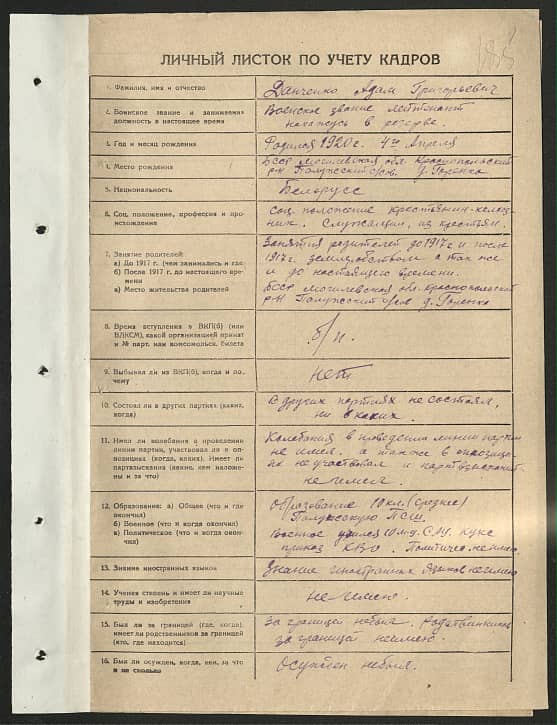 ЛИЧНЫЙ ЛИСТОК ПО УЧЕТУ КАДРОВ
1. Фамилия, имя и отчество
Данченко Адам Григорьевич
2. Воинское звание и занимаемая
должность в настоящее время
Воинское звание лейтенант
нахожусь в резерве.
3. Год и месяц рождения
Родился 1920 г. 4го Апреля
4. Место рождения
БССР Могилевская обл. Краснопольский
р-н Палужский с/сов. д. Горенка
5. Национальность
Белорусс
6. Соц. положение, профессия и про-
исхождение
Соц. положение крестьянин-колхоз
ник. Служащий, из крестьян.
7. Занятие родителей:
а) До 1917 г. (чем занимались и где)
б) После 1917 г. до настоящего вре-
мени
в) Место жительства родителей
Занятия родителей до 1917 г и после
1917 г. земледельством а так же
и до настоящего времени.
БССР Могилевская обл. Краснопольский
р-н Палужский с/сов д. Горенка
8. Время вступления в ВКП(б) (или
ВЛКСМ), какой организацией принят
и № парт. или комсомольск. билета
б/п.
9. Выбывал ли из ВКП(б), когда и по-
чему
нет
10. Состоял ли в других партиях (каких,
когда)
В других партиях не состоял,
ни в каких.
11. Имел ли колебания в проведении
линии партии, участвовал ли в оп-
позициях (когда, каких). Имеет ли
партвзыскания (какие, кем наложе-
ны и за что)
Колебания в проведении линии партии
не имел. а так же в оппозици-
ях не участвовал и партвзысканий
не имел.
12. Образование: а) Общее (что и где
окончил)
б) Военное (что и когда окончил)
в) Политическое (что и когда окон-
чил)
Образование 10 кл. (среднее)
Палужскую ПСШ.
Военное
КВО. Политическ не имею.
13. Знание иностранных языков
Знание иностранных языков не имею
14. Ученая степень и имеет ли научные
труды и изобретения
не имею.
15. Был ли за границей (где, когда),
имеет ли родственников за границей
(кто, где находится)
За границей не был. Родственников
за границей не имею.
16. Был ли осужден, когда, кем, за что
и на сколько
Осужден не был.